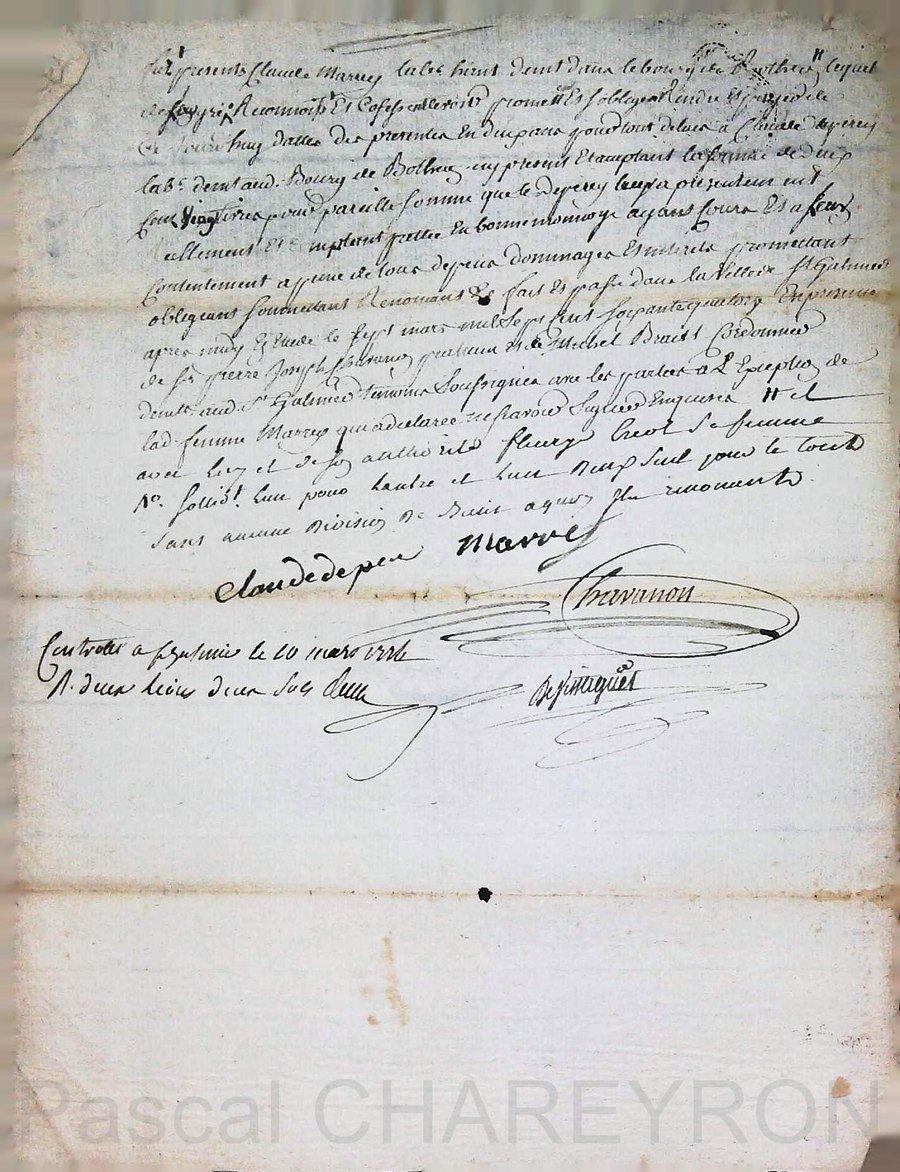 fut présent Claude Marrey lab.r habit. demt dans le bourg de Bothéon # lequel
de son gré Reconnoit Et Confesse devoir promet Et s'oblige Rendre Et payer de
ce Jourdhuy datte des presentes En deux ans pour tous delais à Claude depery
lab.r demt aud. Bourg de Bothéon icy present Et acceptant la somme de deux
Cent Vingt livres pour pareille somme que le depery luy a presentement
Réellement Et Comptant prettée En bonne monnoye ayant Cours Et a son
Contentement a peine de tous depens dommages Et interets promettant
obligeant soumettant Renonçant &c fait Et passé dans la Ville de St Galmier
apres midy Et Etude le sept mars mil sept cent soixante quatorze En presence
de Sr pierre Joseph Chavanon praticien Et de Michel Cordonnier
demts. aud. St Galmier temoins Soussignés avec les parties à L'Exception de
lad. femme Marrey qui a declarée ne sçavoir Signer Enquise # et
avec luy et de son authorité fleurye Créot Sa femme
solid.t l'un pour lautre et l'un deux seul pour le toutt
sans aucune division de Biens aquoy ils renoncent
Claude depery Marrey
Chavanon
Controllé a St galmier le 10 mars 1774
R. deux livres deux sols
Pascal CHAREYRON